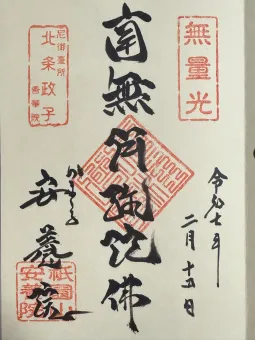 無量光
令和七年
二月十五日
南無阿弥陀佛
かまくら
安養院
尼御臺所
北条政子
香華院
祇園山
安養院